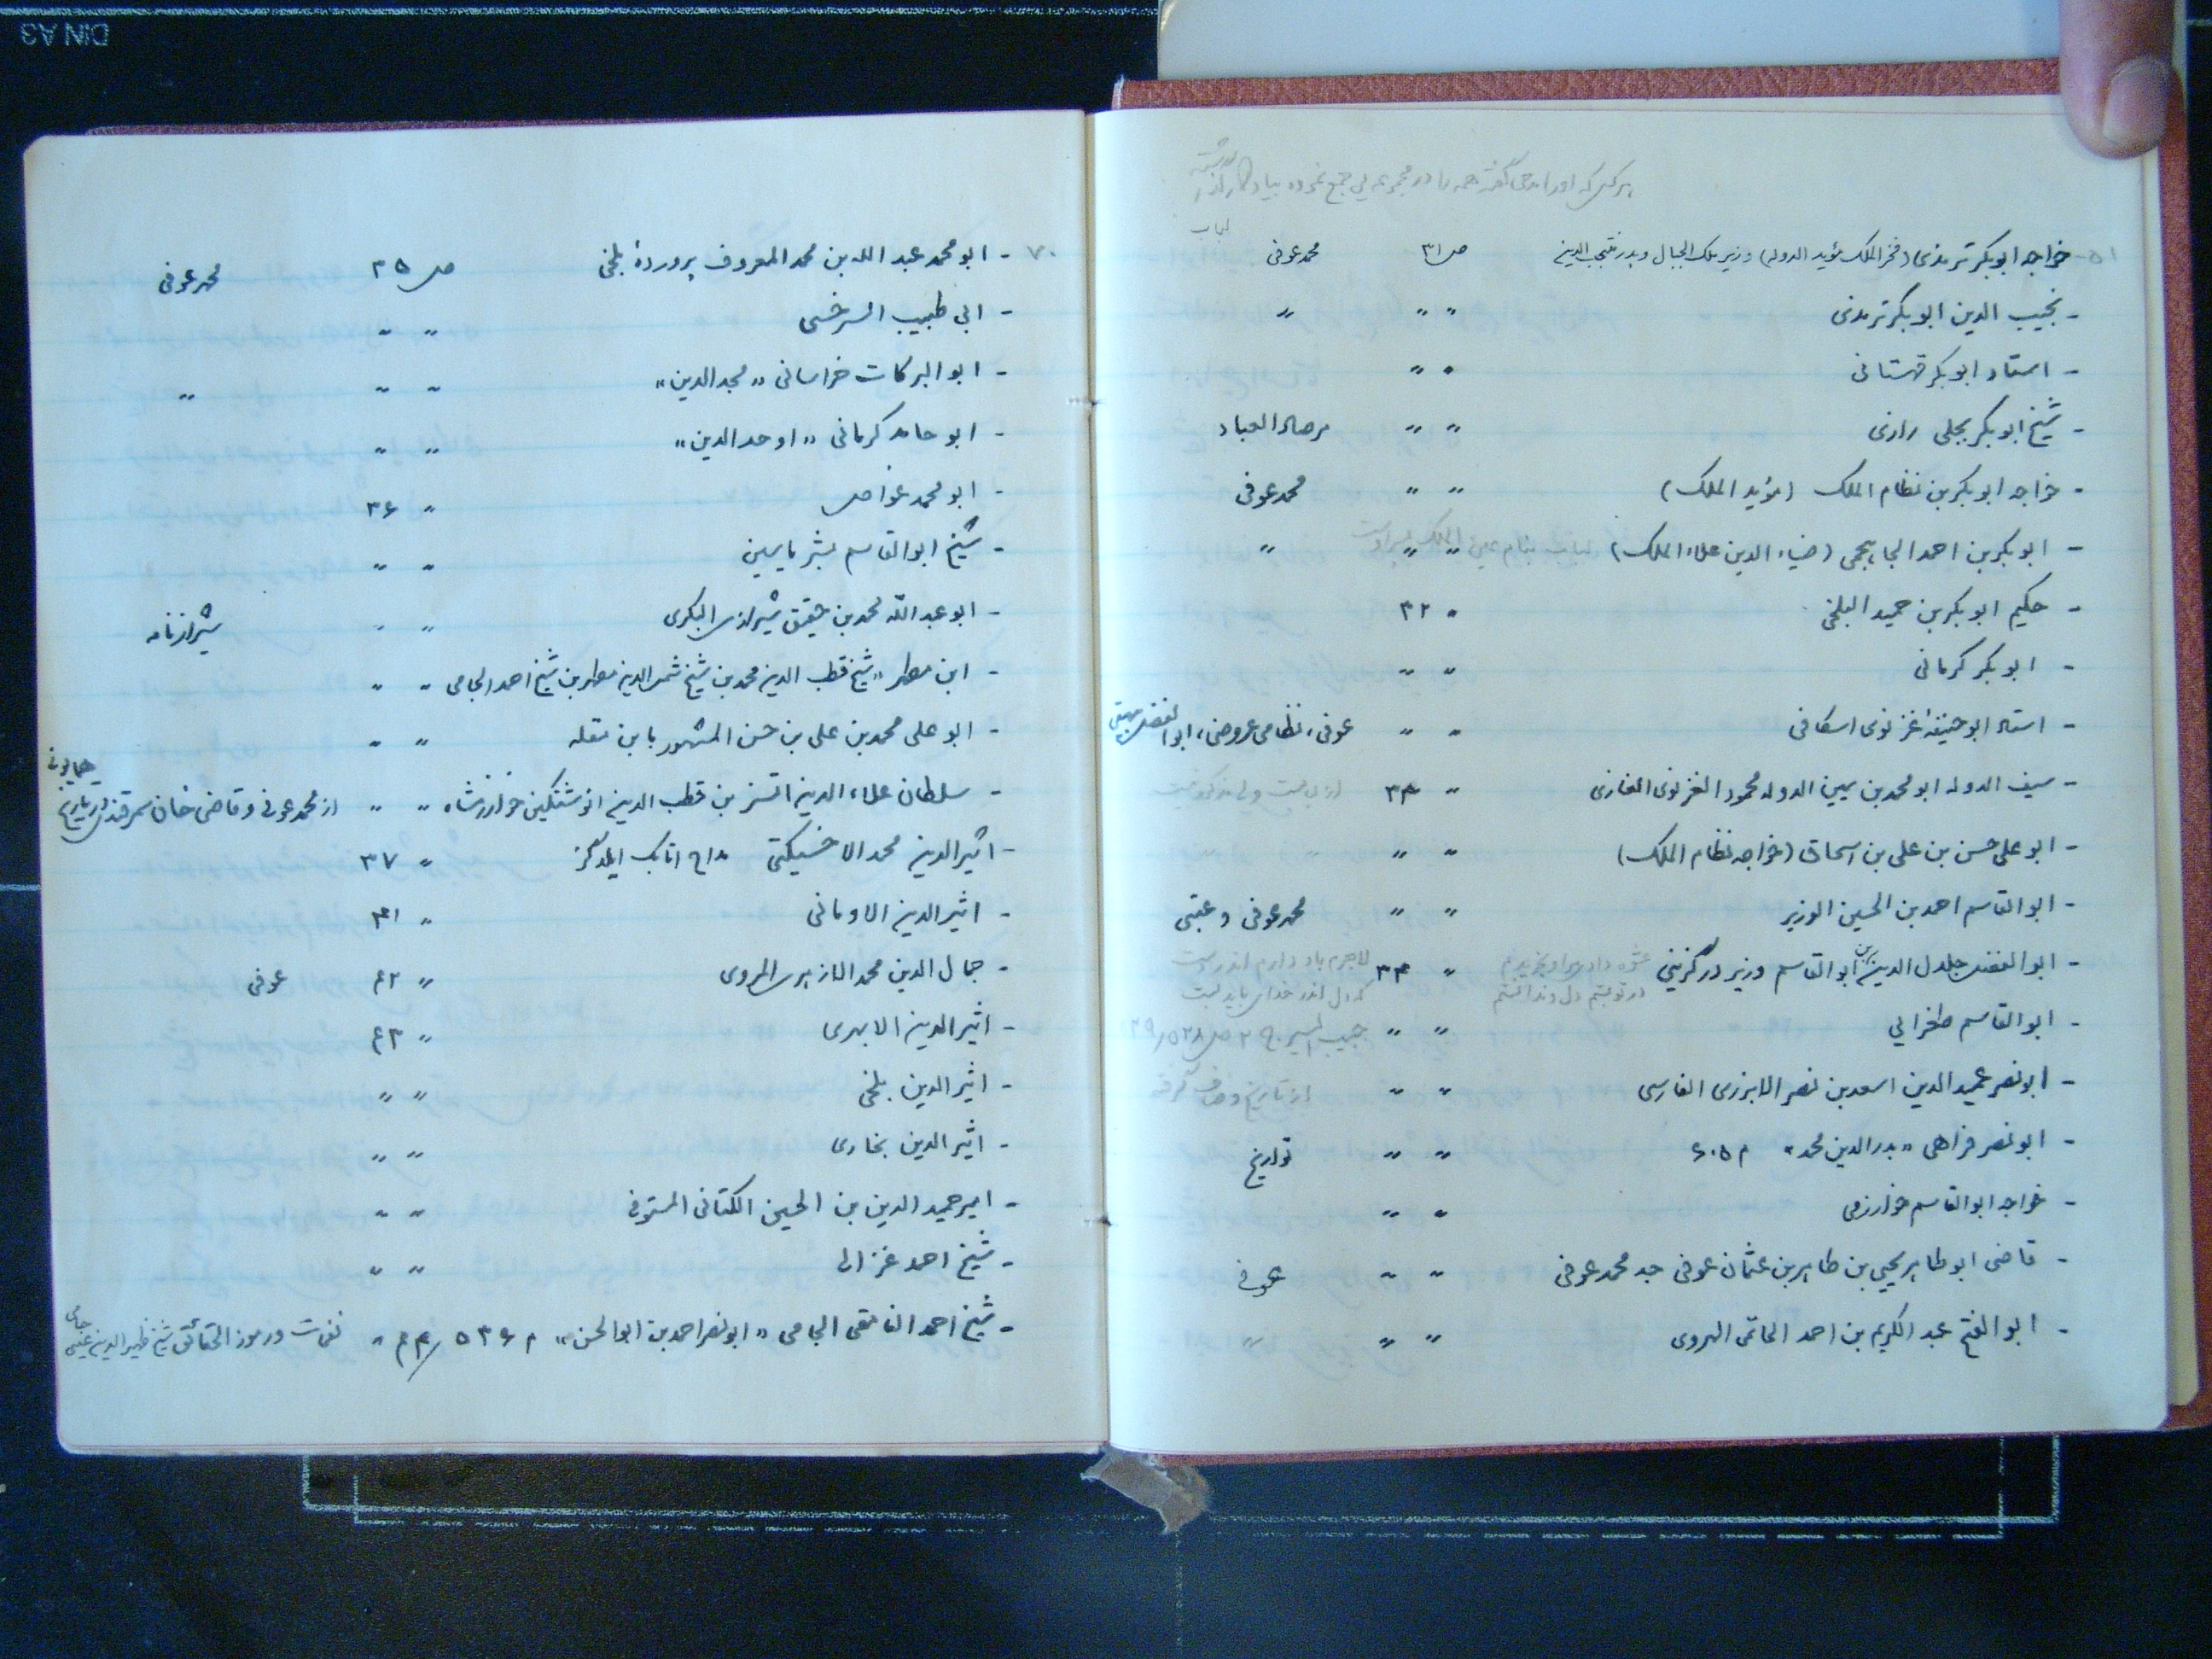 DIN A3
هرکس که او را مدحی گفته همه را در مجموعه یی جمع نموده بیادگار گذاشته
لباب
۵۱- خواجه ابوبکر ترمذی (فخرالملک مؤید الدوله) وزیر ملک الجبال و پدر منتجب الدین ص ۳۱ محمد عوفی
- نجیب الدین ابوبکر ترمذی " " "
- استاد ابوبکر قهستانی " "
- شیخ ابوبکر بجلی رازی " " مرصاد العباد
- خواجه ابوبکر بن نظام الملک (مؤید الملک) " " محمد عوفی
- ابوبکر بن احمد الجامجی (ضیاء الدین علاء الملک) " " " لباب بنام عین الملک
- حکیم ابوبکر بن حمید البلخی " ۳۲
- ابوبکر کرمانی " "
- استاد ابوحنیفهٔ غزنوی اسکافی " " عوفی، نظامی عروضی، ابوالفضل بیهقی
- سیف الدوله ابومحمد بن یمین الدوله محمود الغزنوی الغازی " ۳۳
- ابوعلی حسن بن علی بن اسحاق (خواجه نظام الملک) " "
- ابوالقاسم احمد بن الحسین الوزیر " " محمد عوفی و عتبی
- ابوالفضل جلال الدین بن ابوالقاسم وزیر درگزینی " ۳۴
لاجرم باد دارم اندر دست
در تو بستم دل و ندانستم که دل اندر خدای باید بست
- ابوالقاسم طغرایی " " حبیب السیر ج ۲ ص ۵۲۸
- ابونصر عمید الدین اسعد بن نصر الابزری الفارسی " " از تاریخ وصاف گرفته
- ابونصر فراهی «بدرالدین محمد» م ۶۰۵ " " تواریخ
- خواجه ابوالقاسم خوارزمی " "
- قاضی ابوطاهر یحیی بن طاهر بن عثمان عوفی جد محمد عوفی " " عوفی
- ابوالفتح عبدالکریم بن احمد الحاتمی الهروی " " "
۷۰- ابومحمد عبدالله بن محمد المعروف بروزدهٔ بلخی ص ۳۵ محمد عوفی
- ابی طبیب السرخسی " "
- ابوالبرکات خراسانی «مجدالدین» " " "
- ابو حامد کرمانی «اوحدالدین» " "
- ابومحمد غواص " ۳۶
- شیخ ابوالقاسم بشر یاسین " "
- ابوعبدالله محمد بن حقیق شیرازی البکری " " شیرازنامه
- ابن مطهر «شیخ قطب الدین محمد بن شیخ شمس الدین مطهر بن شیخ احمد الجامی " "
- ابوعلی محمد بن علی بن حسن المشهور بابن مقله " "
- سلطان علاء الدین اتسز بن قطب الدین انوشتکین خوارزمشاه " " از محمد عوفی و قاضی خان سمرقندی در تاریخ همایونی
- اثیرالدین محمد الاخسیکتی مداح اتابک ایلدگز " ۳۷
- اثیرالدین الاومانی " ۴۱
- جمال الدین محمد الازهری المروی " ۴۲ عوفی
- اثیرالدین الابهری " ۴۳
- اثیرالدین بلخی " "
- اثیرالدین بخاری " "
- امیر حمیدالدین بن الحسین الکتانی المستوفی " "
- شیخ احمد غزالی " "
- شیخ احمد النامقی الجامی «ابونصر احمد بن ابوالحسن» م ۵۳۶ " ۴۴ نفحات و رموز الحقائق شیخ ظهیرالدین عیسی جامی